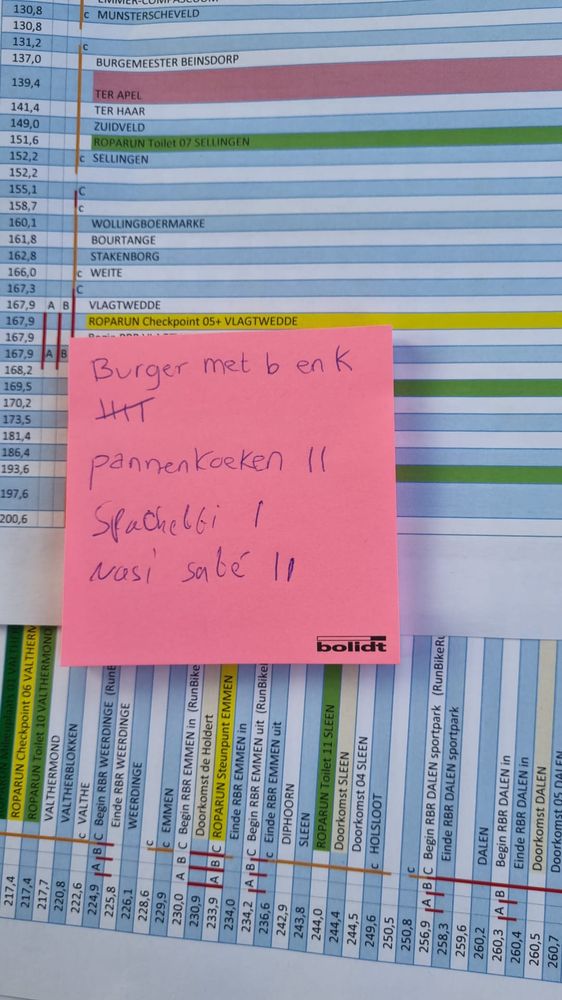 130,8
130,8 c MUNSTERSCHEVELD
131,2 c
137,0 BURGEMEESTER BEINSDORP
139,4 TER APEL
141,4 TER HAAR
149,0 ZUIDVELD
151,6 ROPARUN Toilet 07 SELLINGEN
152,2 c SELLINGEN
152,2
155,1 C
158,7 c
160,1 WOLLINGBOERMARKE
161,8 BOURTANGE
162,8 STAKENBORG
166,0 c WEITE
167,3 C
167,9 A B VLAGTWEDDE
167,9 ROPARUN Checkpoint 05+ VLAGTWEDDE
167,9
167,9 A B
168,2
169,5
170,2
173,5
181,4
186,4
193,6
197,6
200,6
Burger met b en K
pannenkoeken II
Spachetti I
Nasi saté II
bolidt
217,4 ROPARUN Checkpoint 06 VALTHERM
217,4 ROPARUN Toilet 10 VALTHERMOND
217,7 VALTHERMOND
220,8 VALTHERBLOKKEN
222,6 c VALTHE
224,9 A B C Begin RBR WEERDINGE (RunB
225,8 Einde RBR WEERDINGE
226,1 WEERDINGE
228,6 c
229,9 c EMMEN
230,0 A B C Begin RBR EMMEN in (RunBike
230,9 Doorkomst de Holdert
233,9 A B C ROPARUN Steunpunt EMMEN
234,0 Einde RBR EMMEN in
234,2 A B C Begin RBR EMMEN uit (RunBike
236,6 c Einde RBR EMMEN uit
242,9 DIPHOORN
243,8 SLEEN
244,0 ROPARUN Toilet 11 SLEEN
244,4 Doorkomst SLEEN
244,5 Doorkomst 04 SLEEN
249,6 c HOLSLOOT
250,5
250,8 c
256,9 A B C Begin RBR DALEN sportpark (RunBikeRu
258,3 Einde RBR DALEN sportpark
259,6
260,2 DALEN
260,3 A B Begin RBR DALEN in
260,4 Einde RBR DALEN in
260,5 Doorkomst DALEN
260,7 Doorkomst 05 DALEN